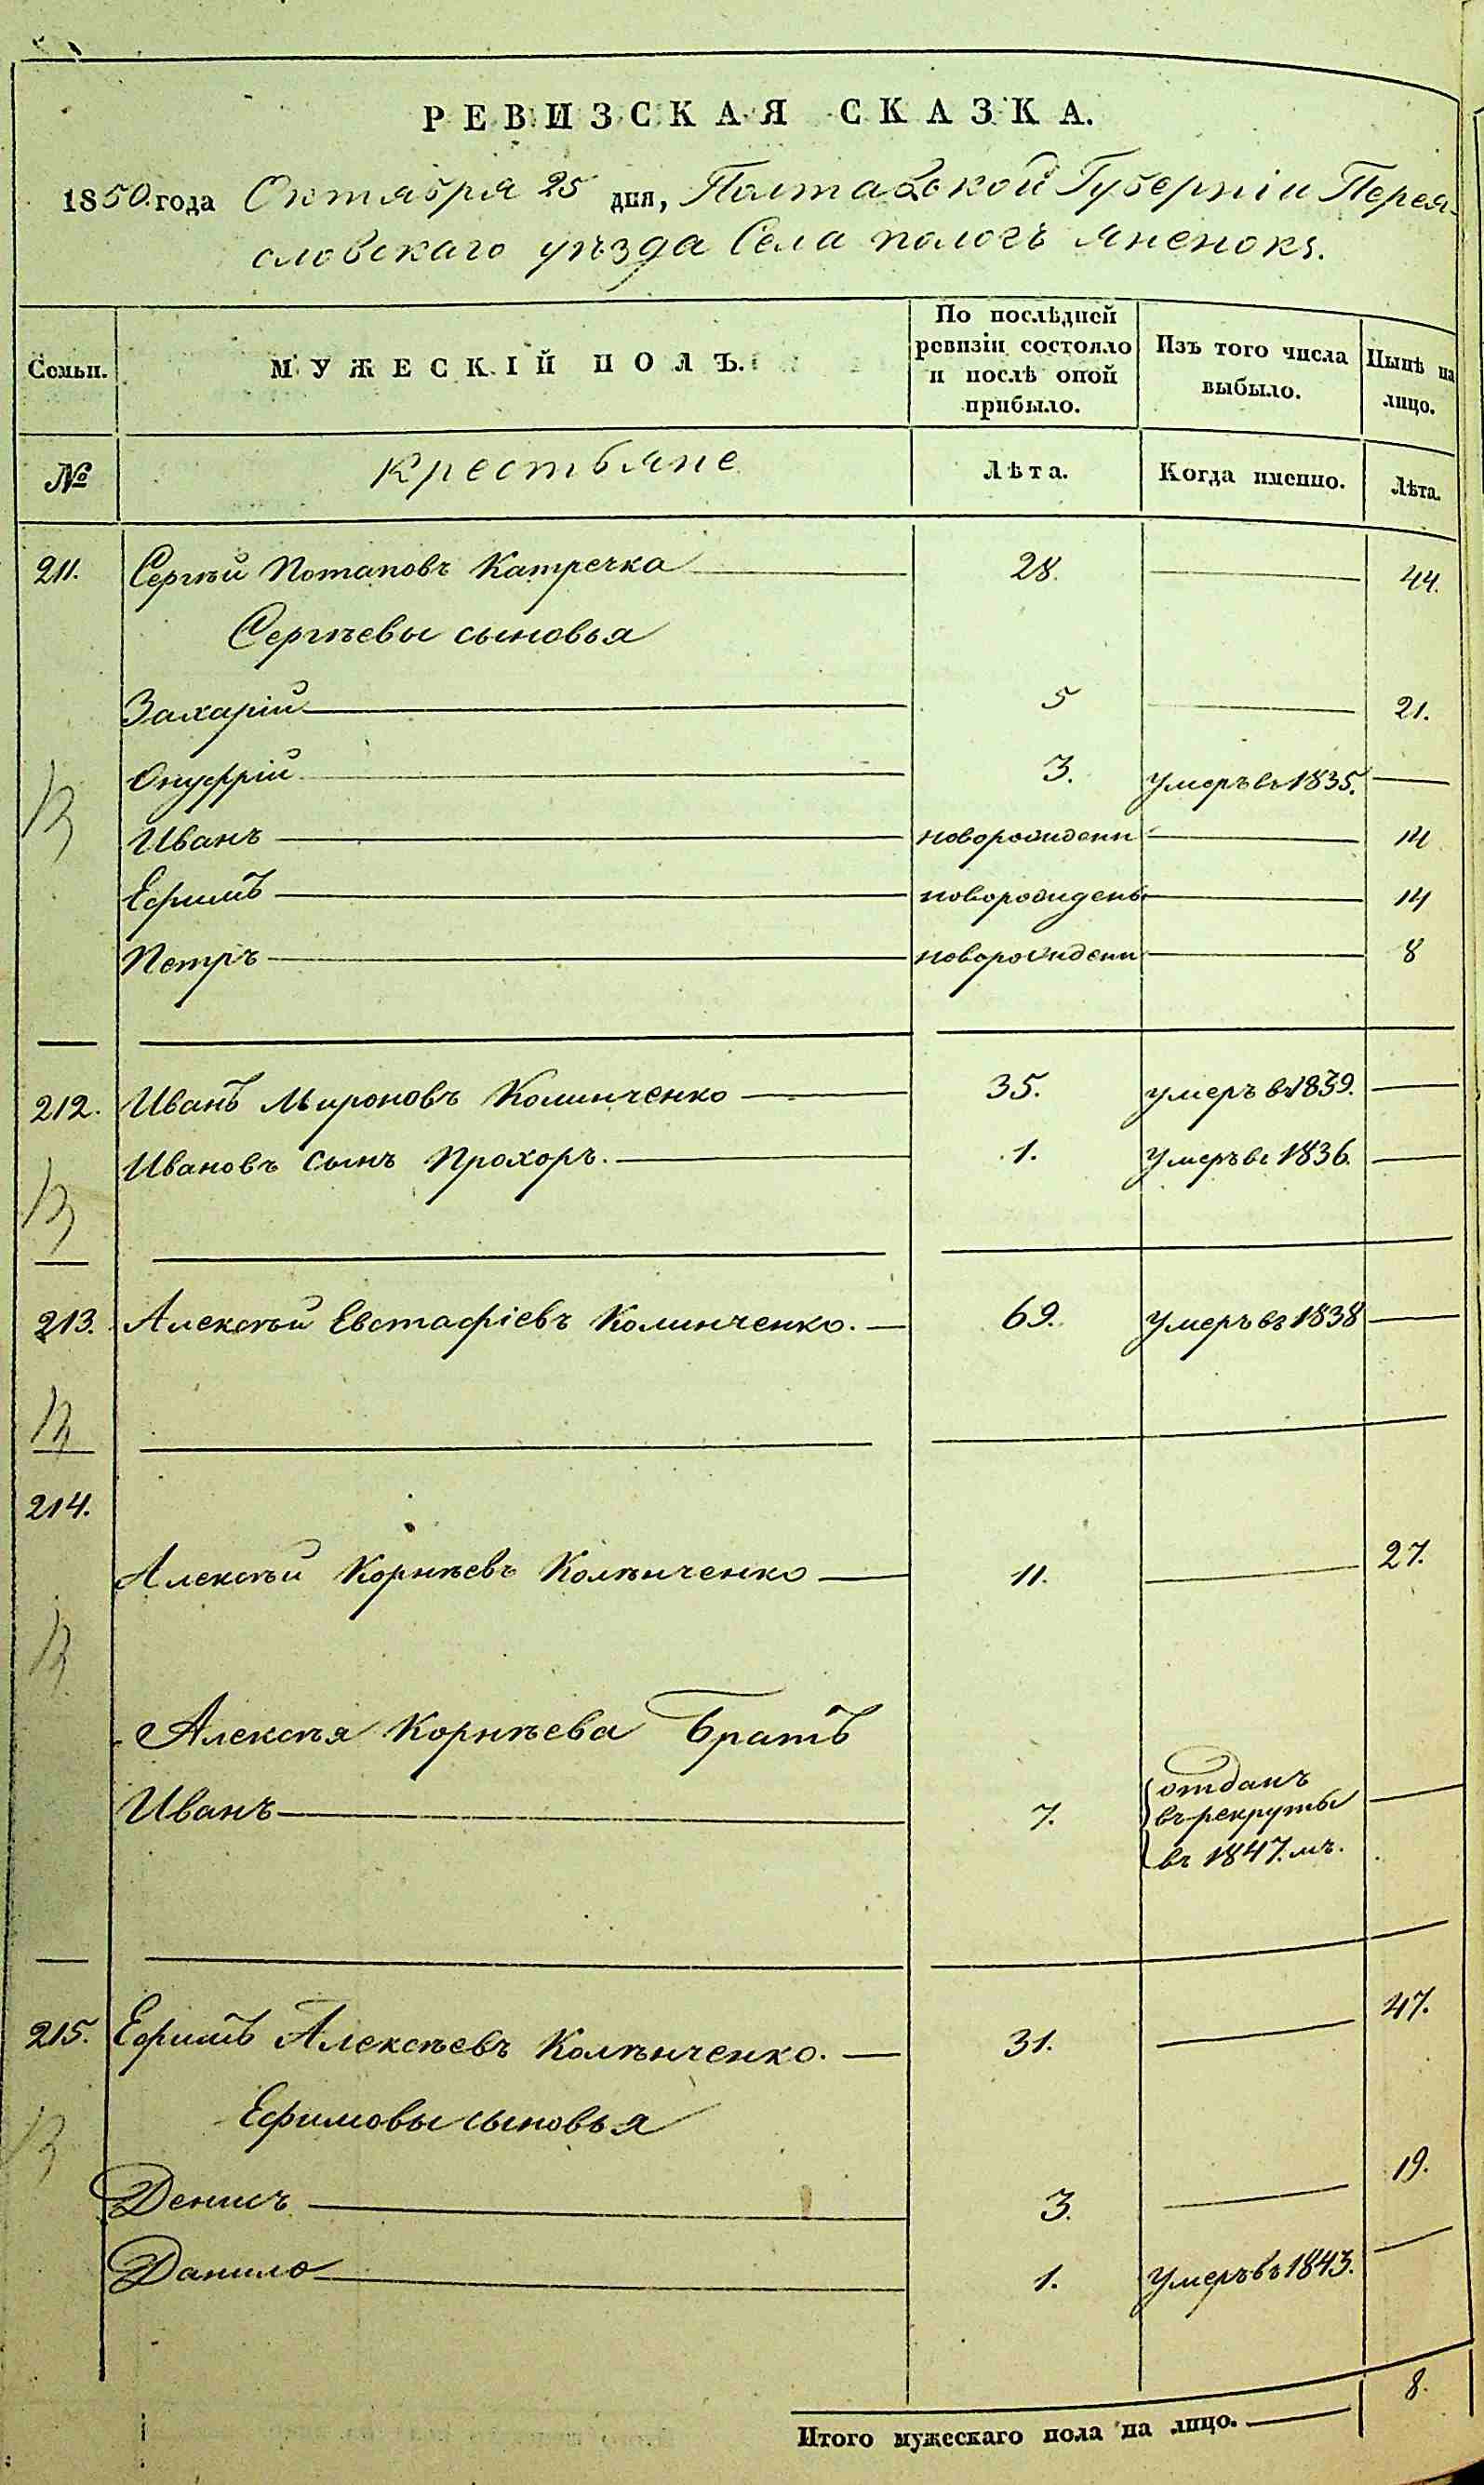 РЕВИЗСКАЯ СКАЗКА.
1850.года Октября 25 дня, Полтавской Губерніи Перея-
словскаго уѣзда Села пологъ яненокъ.
Семьи.
МУЖЕСКІЙ ПОЛЪ.
По послѣдней
ревизіи состояло
и послѣ оной
прибыло.
Изъ того числа
выбыло.
Нынѣ на
лицо.
№
крестьяне
Лѣта.
Когда именно.
Лѣта.
211. Сергѣй Потаповъ Катречка 28. 44.
Сергѣевы сыновья
Захарій 5 21.
Онуфрій 3. умеръ въ 1835.
Иванъ новорожденн 14
Ефимъ новорожденъ 14
Петръ новорожденн 8
212. Иванъ Мироновъ Колинченко 35. умеръ в 1839.
Ивановъ сынъ Прохоръ. 1. умеръ въ 1836.
213. Алексѣй Евстафіевъ Колинченко. 69. умеръ въ 1838
214.
Алексѣй Корнѣевъ Колѣнченко 11. 27.
Алексѣя Корнѣева Братъ
Иванъ 7. отданъ
въ рекруты
въ 1847.мъ.
215. Ефимъ Алексѣевъ Колѣнченко. 31. 47.
Ефимовы сыновья
Денисъ 3. 19.
Данило 1. умеръ въ 1843.
Итого мужескаго пола на лицо. 8.